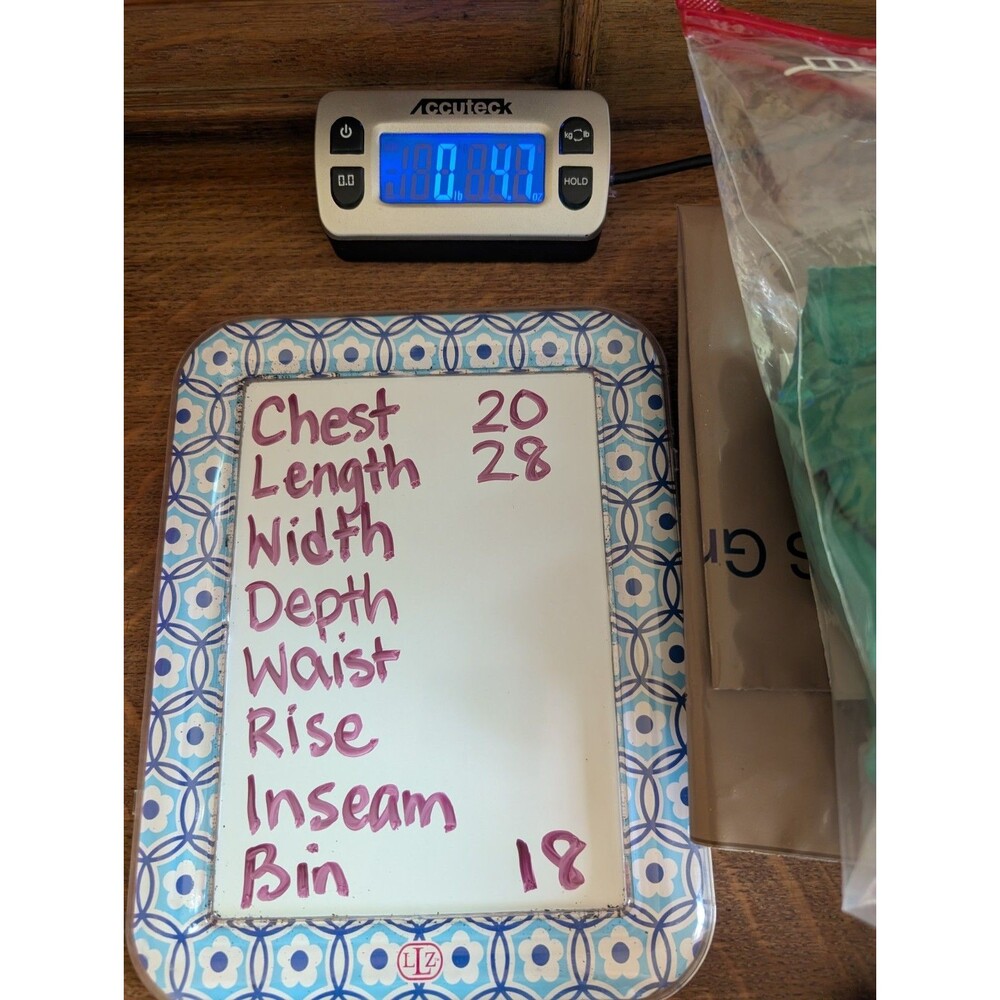 Accuteck
kg lb
0.0
0 lb 4.7 oz
HOLD
Chest 20
Length 28
Width
Depth
Waist
Rise
Inseam
Bin 18
LLZ